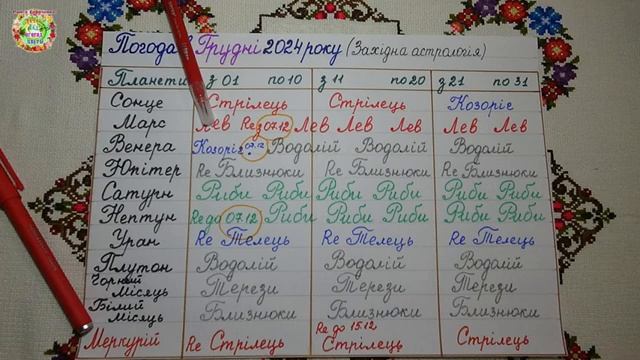 Погода в Грудні 2024 року (Західна астрологія)
Планети з 01 по 10 з 11 по 20 з 21 по 31
Сонце Стрілець Стрілець Козоріг
Марс Лев Re з 07.12 Лев Лев Лев Лев Лев
Венера Козоріг 07.12 Водолій Водолій Водолій
Юпітер Re Близнюки Re Близнюки Re Близнюки
Сатурн Риби Риби Риби Риби Риби Риби
Нептун Re до 07.12 Риби Риби Риби Риби Риби
Уран Re Телець Re Телець Re Телець
Плутон Водолій Водолій Водолій
Чорний Місяць Терези Терези Терези
Білий Місяць Близнюки Близнюки Близнюки
Меркурій Re Стрілець Re до 15.12 Стрілець Стрілець